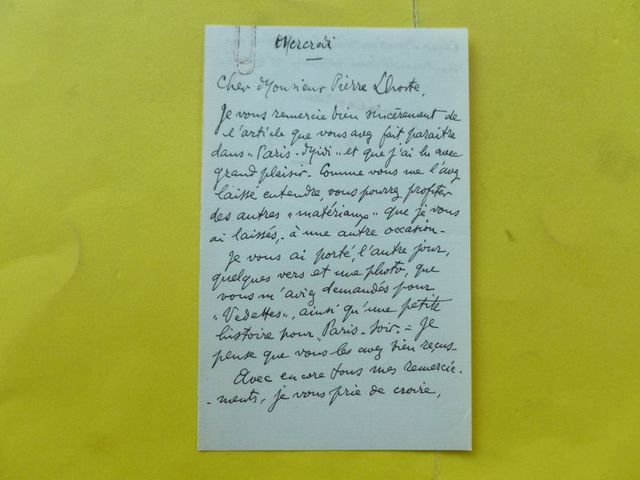 Mercredi
Cher Monsieur Pierre Lhoste,
Je vous remercie bien sincèrement de
l'article que vous avez fait paraître
dans "Paris-Midi" et que j'ai lu avec
grand plaisir. Comme vous me l'avez
laissé entendre, vous pourrez profiter
des autres "matériaux" que je vous
ai laissés, - à une autre occasion -
Je vous ai porté, l'autre jour,
quelques vers et une photo, que
vous m'aviez demandés pour
"Vedettes", ainsi qu'une petite
histoire pour "Paris-Soir" - Je
pense que vous les avez bien reçus -
Avec encore tous mes remercie-
-ments, je vous prie de croire,